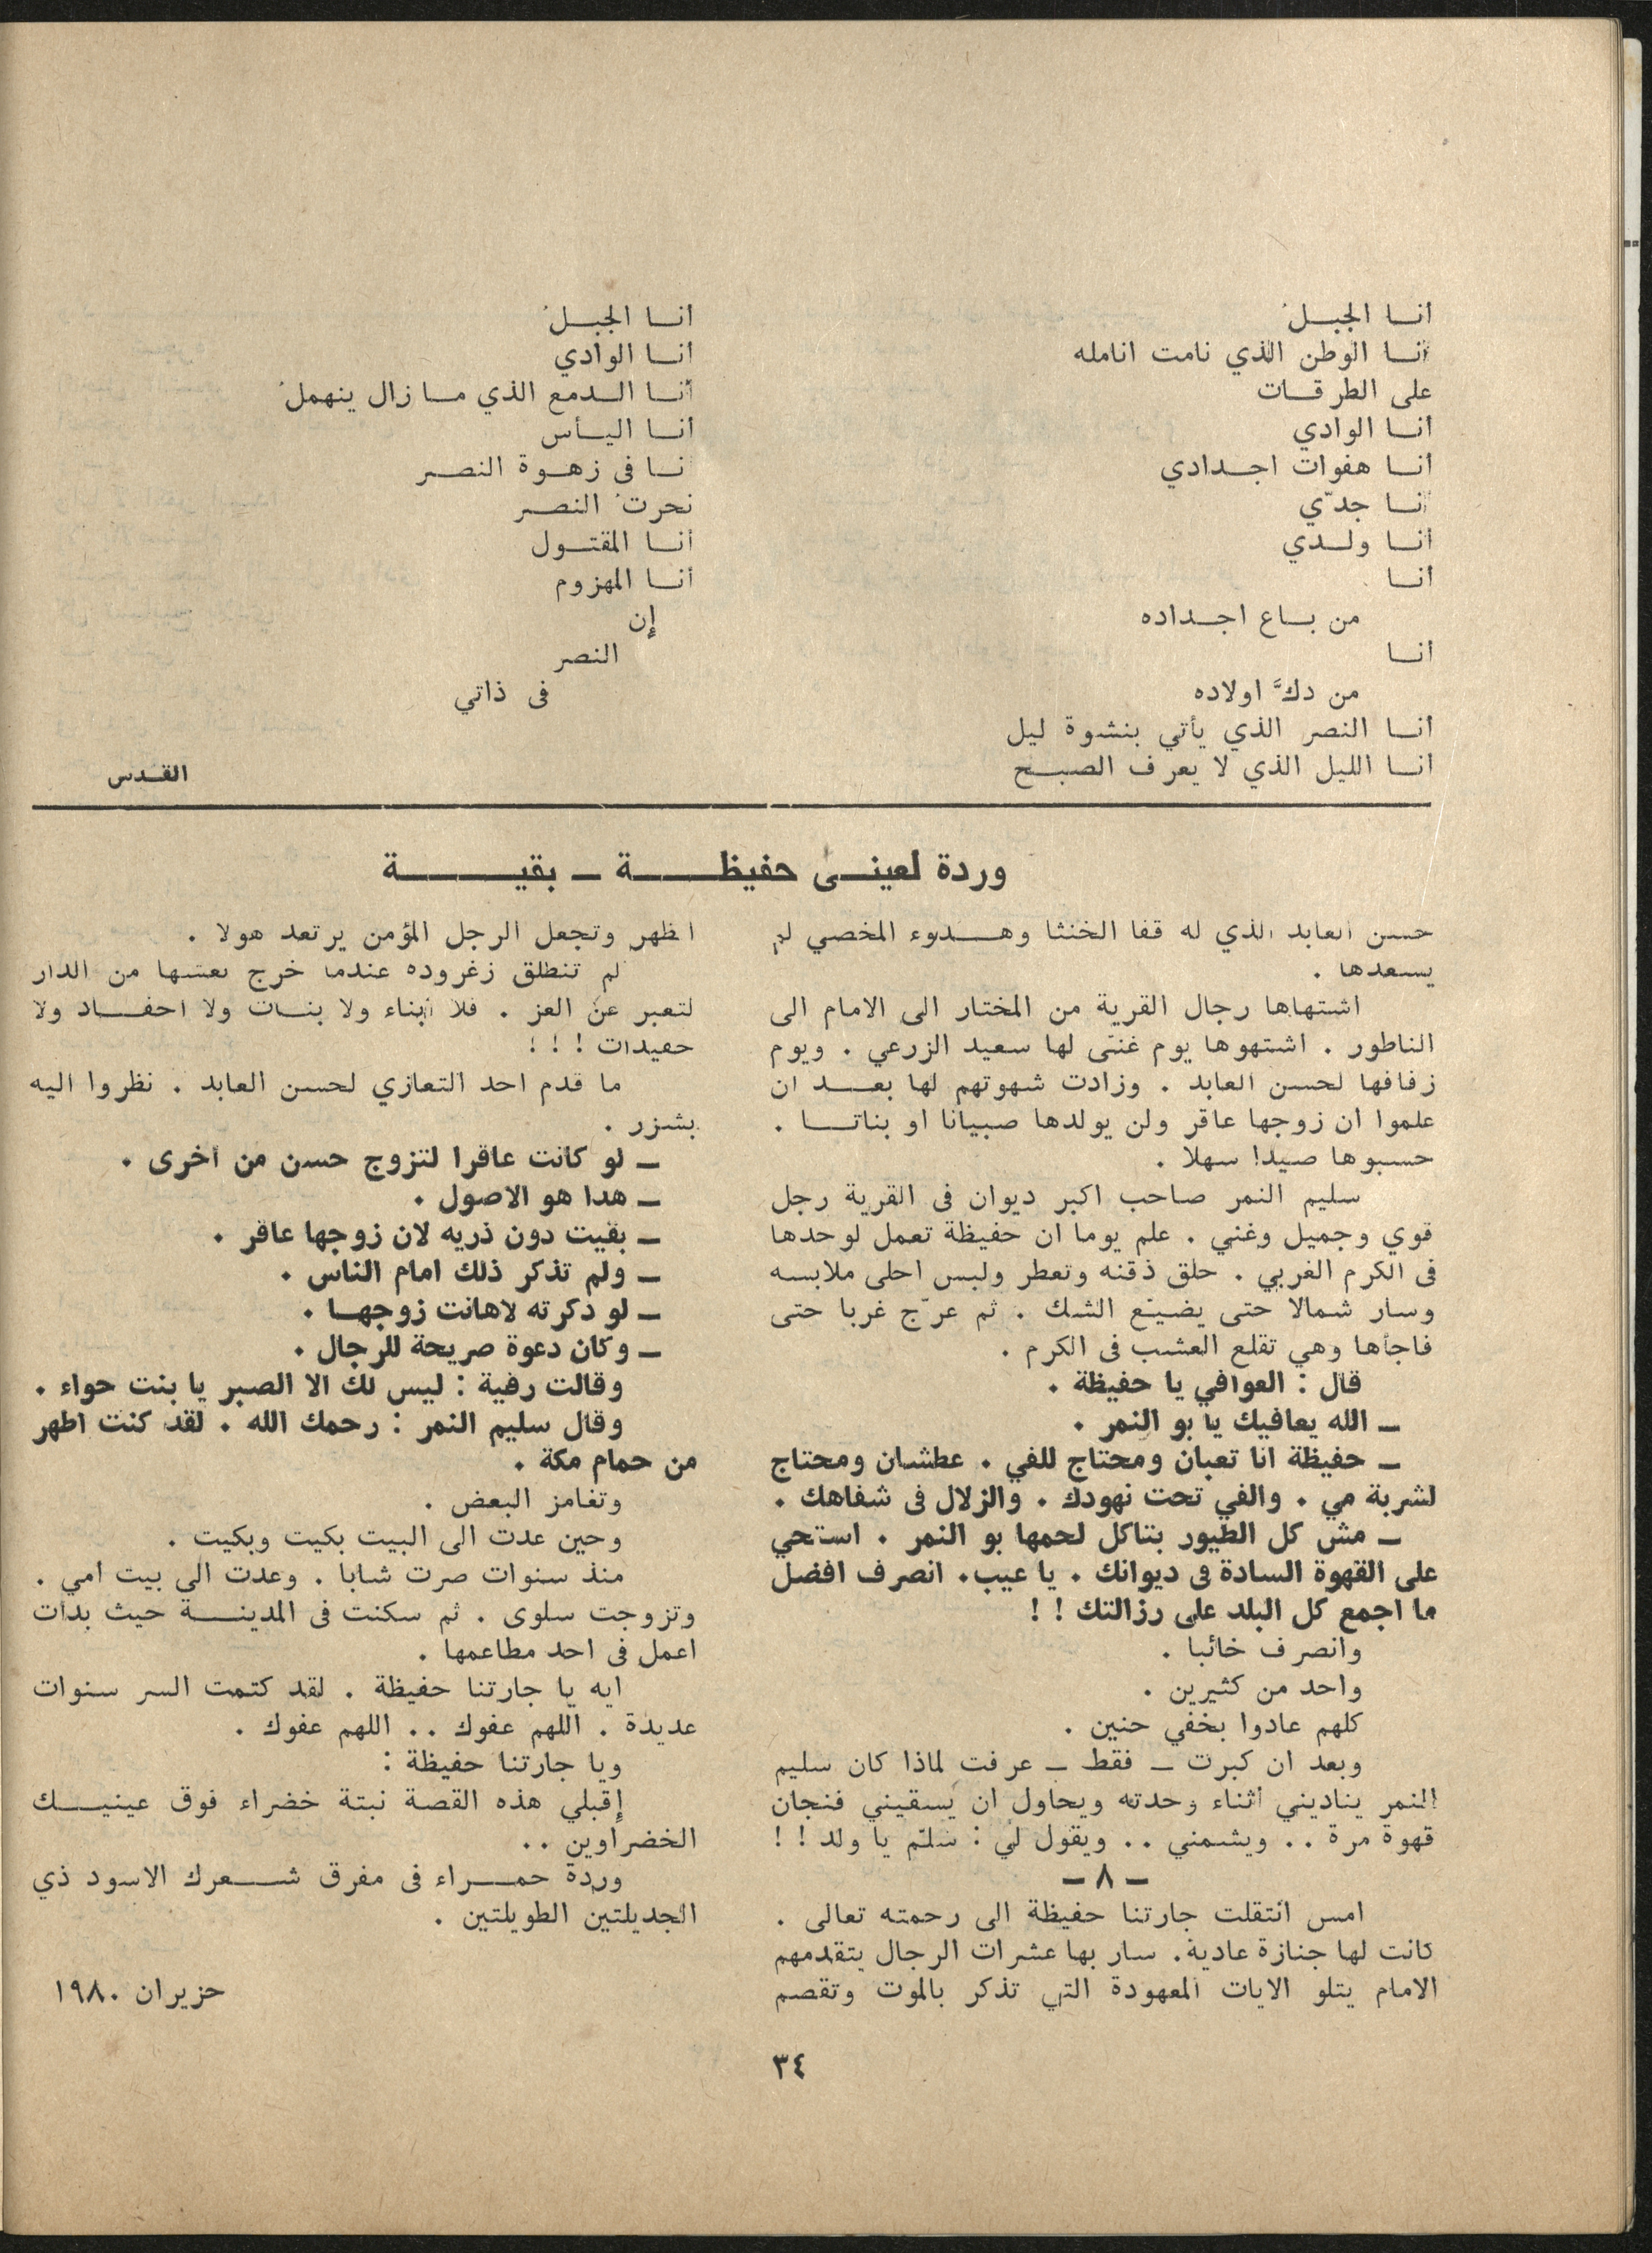 أنا الجبلُ
أنا الوطن الذي نامت انامله
على الطرقات
أنا الوادي
أنا هفوات اجدادي
أنا جدّي
أنا ولدي
أنا
من باع اجداده
أنا
من دكَّ اولاده
أنا النصر الذي يأتي بنشوة ليل
أنا الليل الذي لا يعرف الصبح
أنا الجبلُ
أنا الوادي
أنا الدمع الذي ما زال ينهملُ
أنا اليأس
أنا فى زهوة النصر
نحرتُ النصر
أنا المقتول
أنا المهزوم
إن
النصر
فى ذاتي
القدس
وردة لعينى حفيظة ــ بقية
حسن العابد الذي له قفا الخنثا وهدوء المخصي لم
يسعدها .
اشتهاها رجال القرية من المختار الى الامام الى
الناطور . اشتهوها يوم غنّى لها سعيد الزرعي . ويوم
زفافها لحسن العابد . وزادت شهوتهم لها بعد ان
علموا ان زوجها عاقر ولن يولدها صبيانا او بناتا .
حسبوها صيدا سهلا .
سليم النمر صاحب اكبر ديوان فى القرية رجل
قوي وجميل وغني . علم يوما ان حفيظة تعمل لوحدها
فى الكرم الغربي . حلق ذقنه وتعطر ولبس احلى ملابسه
وسار شمالا حتى يضيّع الشك . ثم عرّج غربا حتى
فاجأها وهي تقلع العشب فى الكرم .
قال : العوافي يا حفيظة .
ــ الله يعافيك يا بو النمر .
ــ حفيظة انا تعبان ومحتاج للفي . عطشان ومحتاج
لشربة مي . والفي تحت نهودك . والزلال فى شفاهك .
ــ مش كل الطيور بتاكل لحمها بو النمر . استحي
على القهوة السادة فى ديوانك . يا عيب. انصرف افضل
ما اجمع كل البلد على رزالتك ! !
وانصرف خائبا .
واحد من كثيرين .
كلهم عادوا بخفي حنين .
وبعد ان كبرت ــ فقط ــ عرفت لماذا كان سليم
النمر يناديني أثناء وحدته ويحاول ان يسقيني فنجان
قهوة مرة .. ويشمني .. ويقول لي : سلّم يا ولد ! !
ــ ٨ ــ
امس انتقلت جارتنا حفيظة الى رحمته تعالى .
كانت لها جنازة عادية. سار بها عشرات الرجال يتقدمهم
الامام يتلو الايات المعهودة التي تذكر بالموت وتقصم
الظهر وتجعل الرجل المؤمن يرتعد هولا .
لم تنطلق زغروده عندما خرج نعشها من الدار
لتعبر عن العز . فلا أبناء ولا بنات ولا احفاد ولا
حفيدات ! ! !
ما قدم احد التعازي لحسن العابد . نظروا اليه
بشزر .
ــ لو كانت عاقرا لتزوج حسن من أخرى .
ــ هذا هو الاصول .
ــ بقيت دون ذريه لان زوجها عاقر .
ــ ولم تذكر ذلك امام الناس .
ــ لو ذكرته لاهانت زوجها .
ــ وكان دعوة صريحة للرجال .
وقالت رفية : ليس لك الا الصبر يا بنت حواء .
وقال سليم النمر : رحمك الله . لقد كنت اطهر
من حمام مكة .
وتغامز البعض .
وحين عدت الى البيت بكيت وبكيت .
منذ سنوات صرت شابا . وعدت الى بيت امي .
وتزوجت سلوى . ثم سكنت فى المدينة حيث بدأت
اعمل فى احد مطاعمها .
ايه يا جارتنا حفيظة . لقد كتمت السر سنوات
عديدة . اللهم عفوك .. اللهم عفوك .
ويا جارتنا حفيظة :
إقبلي هذه القصة نبتة خضراء فوق عينيك
الخضراوين ..
وردة حمراء فى مفرق شعرك الاسود ذي
الجديلتين الطويلتين .
حزيران ١٩٨٠
٣٤